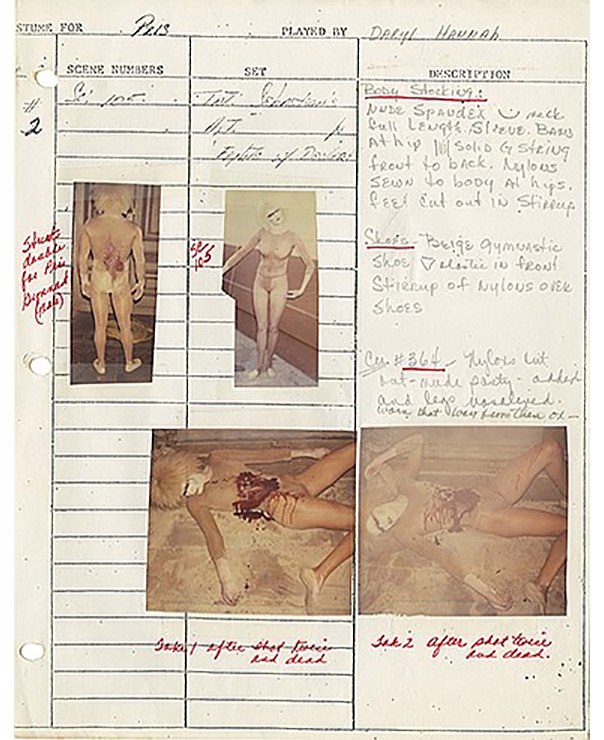 STUME FOR Pris PLAYED BY DARYL HANNAH
SCENE NUMBERS SET DESCRIPTION
#
2
Int. Sebastian's
Apt.
Fights w/ Deckard
Body Stocking:
NUDE SPANDEX neck
full Length. Sleeve. BAND
At hip SOLID G STRING
front to back. Nylons
SEWN to body At hips.
feet cut out in Stirrup
Shoes - Beige gymnastic
Shoe elastic in front
Stirrup of Nylons over
Shoes
#364 - Nylons cut
out - nude panty - added
and legs
worn that way from then on -
Stunt
double
for Pris
(male)
Take 1 after shot twice
and dead
Tak 2 after shot twice
and dead.